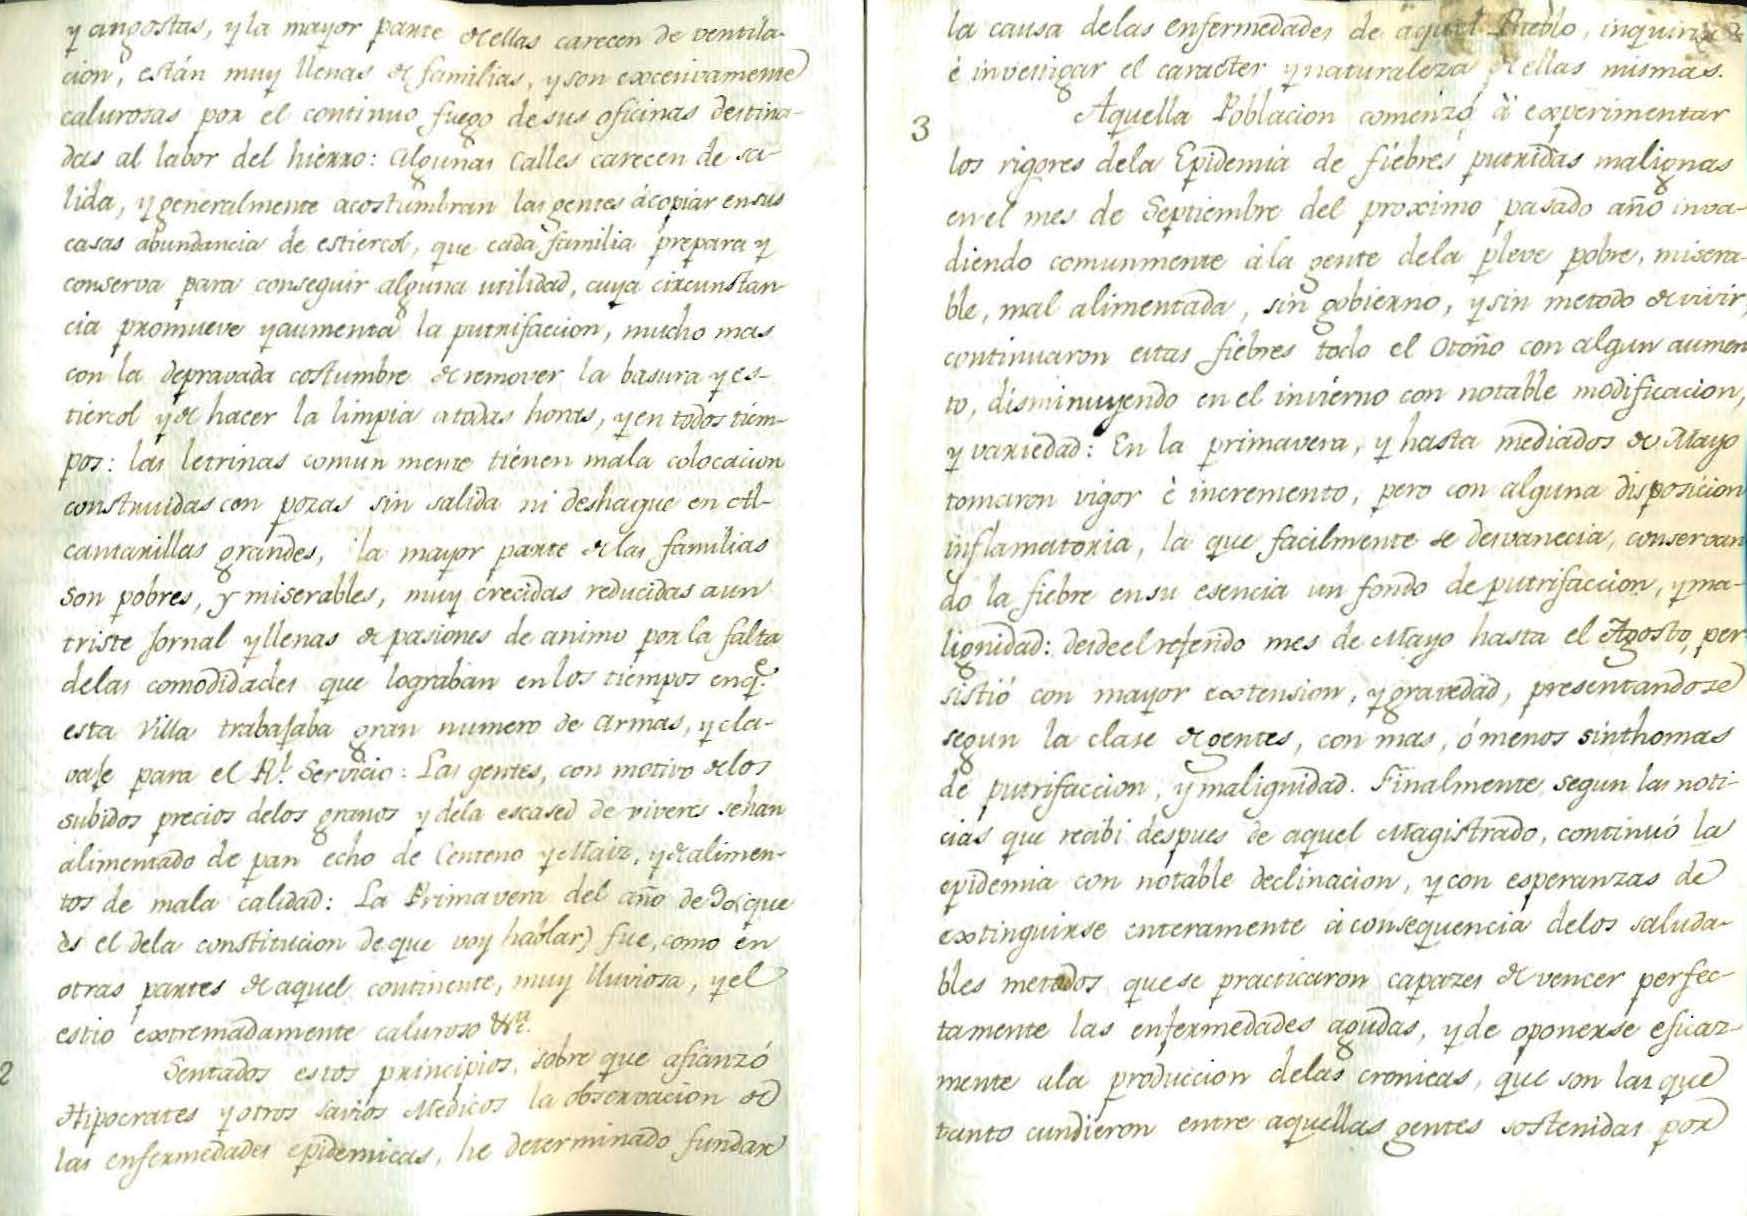 y angostas, y la mayor parte de ellas carecen de ventila-
cion, están muy llenas de familias, y son excesivamente
calurosas por el continuo fuego de sus oficinas destina-
das al labor del hierro: Algunas Calles carecen de sa-
lida, y generalmente acostumbran las gentes ácopiar en sus
casas abundancia de estiercol, que cada familia prepara y
conserva para conseguir alguna utilidad, cuya circunstan
cia promueve y aumenta la putrifaccion, mucho mas
con la depravada costumbre de remover la basura y es-
tiercol y de hacer la limpia a todas horas, y en todos tiem-
pos: las letrinas comun mente tienen mala colocacion
construidas con pozas sin salida ni deshague en Al-
cantarillas grandes, la mayor parte de las familias
son pobres, y miserables, muy crecidas reducidas a un
triste Jornal y llenas de pasiones de animo por la falta
de las comodidades que lograban en los tiempos en q.e
esta Villa trabajaba gran numero de armas, y cla-
vaje para el R.l Servicio: Las gentes, con motivo de los
subidos precios de los granos y de la escased de viveres se han
alimentado de pan echo de Centeno y Maiz, y de alimen-
tos de mala calidad: La Primavera del año de (que
es el de la constitucion de que voy hablar) fue, como en
otras partes de aquel continente, muy lluviosa, y el
estio extremadamente caluroso &.a
2 Sentados estos principios, sobre que afianzó
Hipocrates y otros savios Medicos la observacion de
las enfermedades epidemicas, he determinado fundar
la causa de las enfermedades de aquel Pueblo, inquirir
è investigar el caracter y naturaleza de ellas mismas.
3 Aquella Poblacion comenzó à experimentar
los rigores de la Epidemia de fiebres putridas malignas
en el mes de Septiembre del proximo pasado año inva-
diendo comunmente à la gente de la pleve pobre, misera-
ble, mal alimentada, sin gobierno, y sin metodo de vivir,
continuaron estas fiebres todo el Otoño con algun aumen
to, disminuyendo en el invierno con notable modificacion,
y variedad: En la primavera, y hasta mediados de Mayo
tomaron vigor è incremento, pero con alguna disposicion
inflamatoria, la que facilmente se desvanecia, conservan
do la fiebre en su esencia un fondo de putrifaccion, y ma-
lignidad: desde el referido mes de Mayo hasta el Agosto, per
sistió con mayor extension, y gravedad, presentandose
segun la clase de gentes, con mas, ó menos sinthomas
de putrifaccion, y malignidad. Finalmente segun las noti-
cias que recibi despues de aquel Magistrado, continuó la
epidemia con notable declinacion, y con esperanzas de
extinguirse enteramente à consequencia de los saluda-
bles metodos que se practicaron capazes de vencer perfec-
tamente las enfermedades agudas, y de oponerse eficaz-
mente a la produccion de las cronicas, que son las que
tanto cundieron entre aquellas gentes sostenidas por